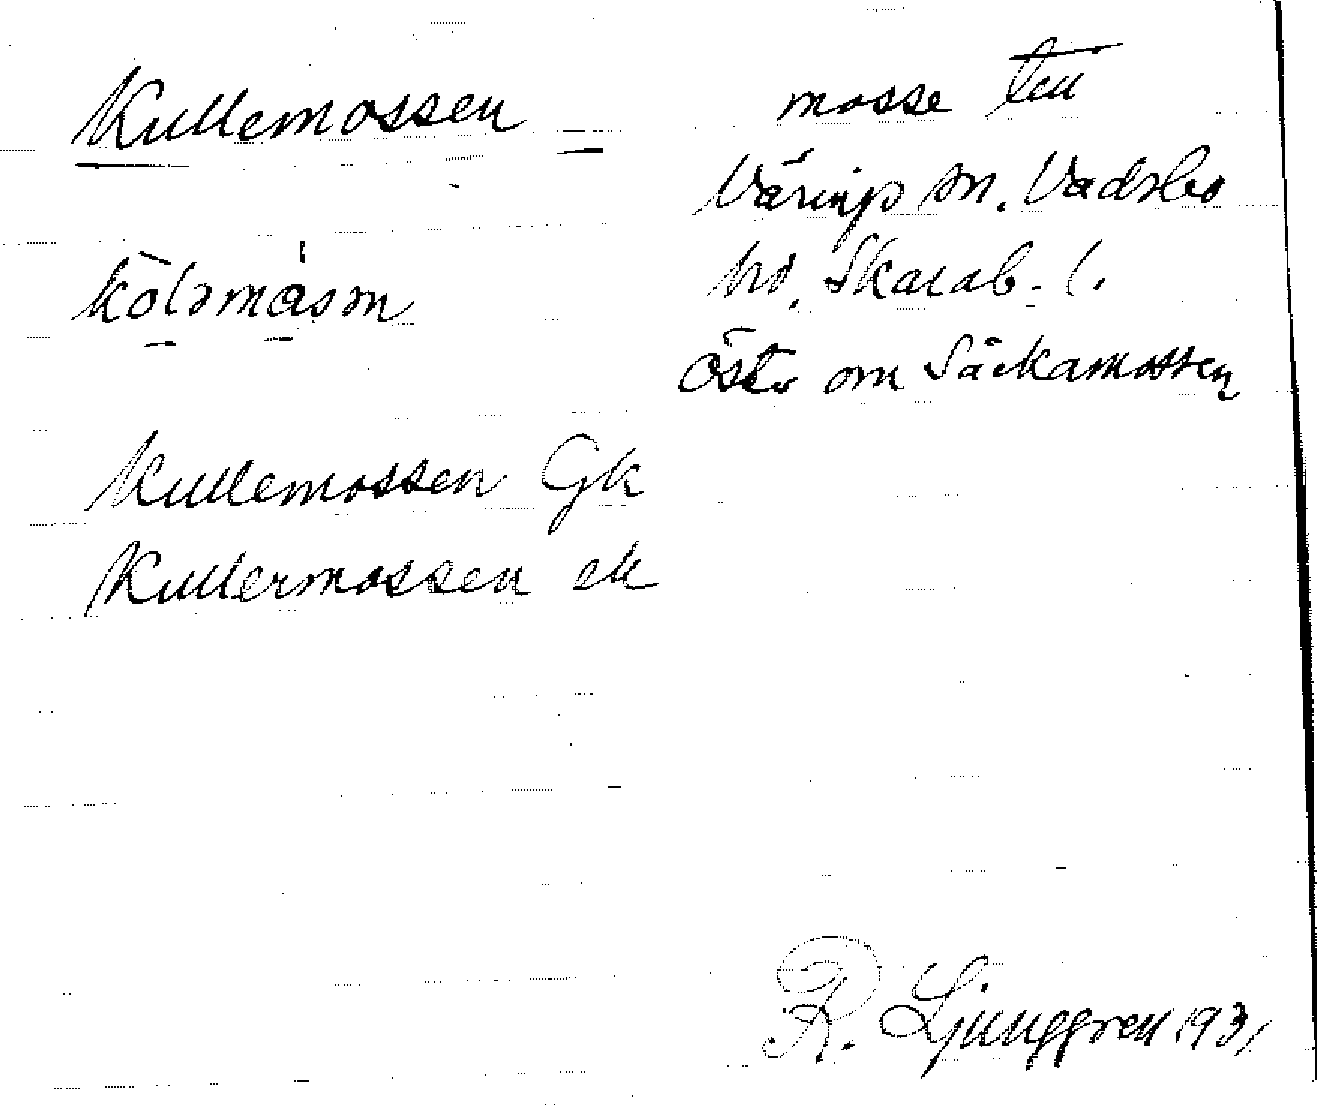 Kullemossen
mosse
Värings sn. Vadsbo
hd. Skarab. l.
öster om Säckamossen
Kullemossen Gk
Kullermossen ek
R. Ljunggren 1931